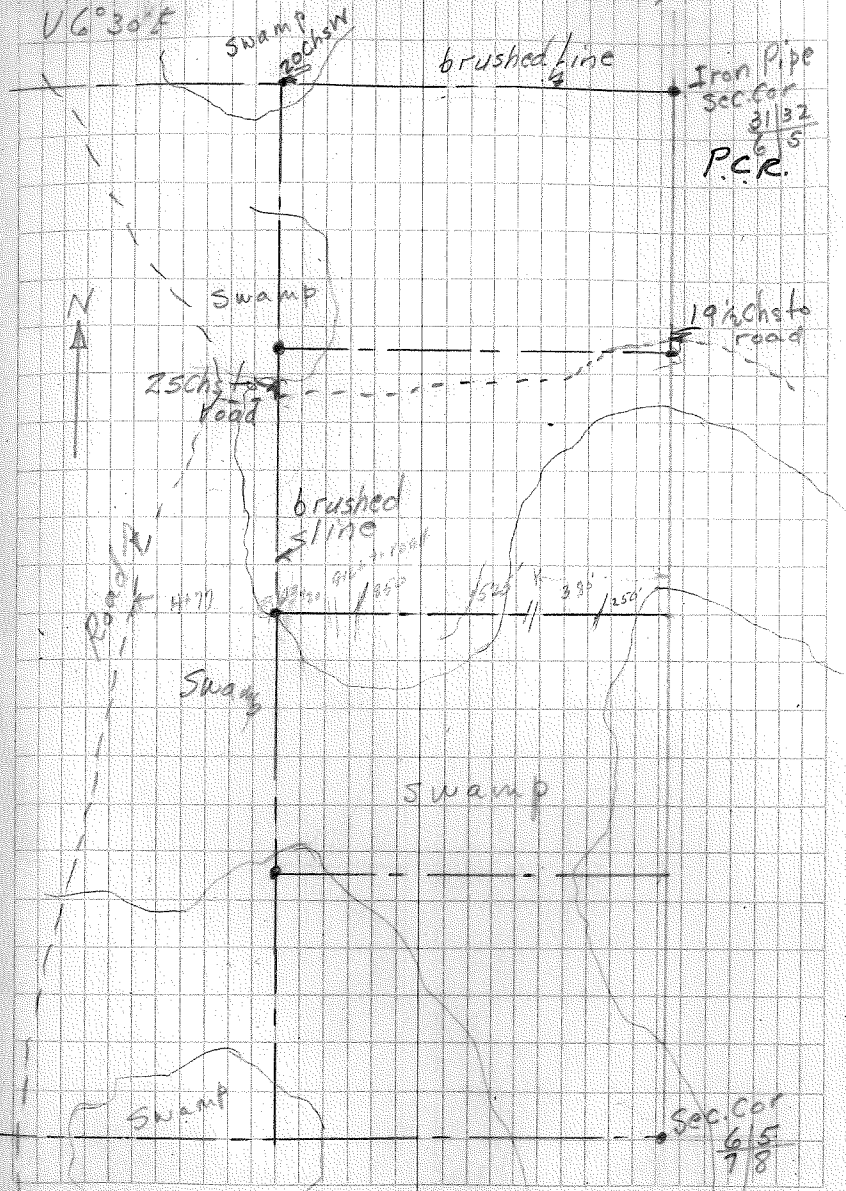 V 6°30'E
Swamp
20 Chs W
brushed line
Iron Pipe
Sec. Cor
31 | 32
6 | 5
P.C.R.
N
Swamp
19½ Chs to
road
25 Chs to
road
brushed
line
Road
4+77
850
525'
385'
250'
Swamp
Swamp
Swamp
Sec. Cor
6 | 5
7 | 8